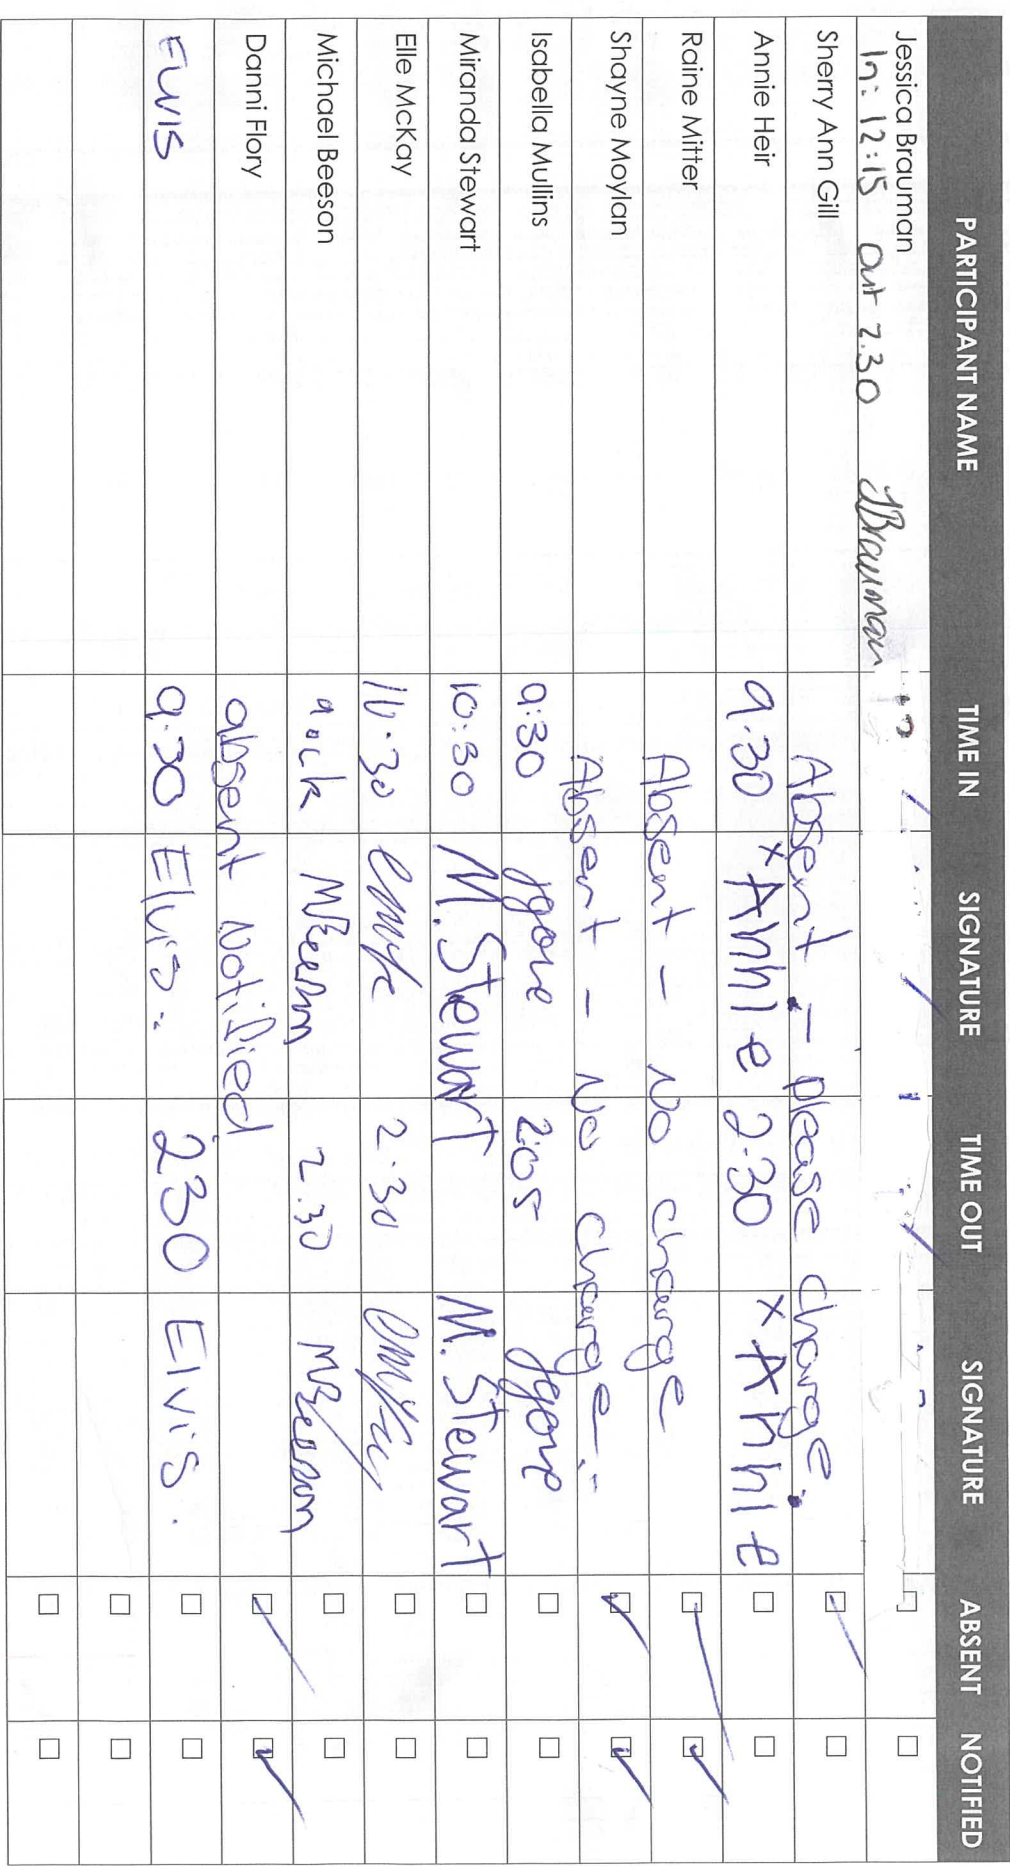 PARTICIPANT NAME TIME IN SIGNATURE TIME OUT SIGNATURE ABSENT NOTIFIED
Jessica Brauman
In: 12:15 out 2.30 JBrauman
Sherry Ann Gill Absent - please charge.
Annie Heir 9.30 x Ahhie 2.30 x Ahhie
Raine Mitter Absent - No charge
Shayne Moylan Absent - No charge
Isabella Mullins 9:30 2:05
Miranda Stewart 10:30 M. Stewart M. Stewart
Elle McKay 2.30
Michael Beeson MBeeson 2.30 MBeeson
Danni Flory absent Notified
ELVIS 9:30 Elvis.. 230 Elvis.